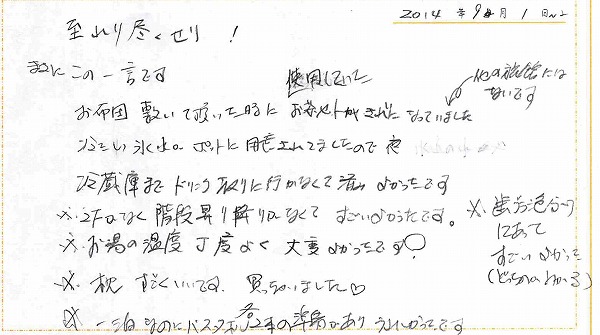 2014年9月1日
至れり尽くせり！
まさにこの一言です
お布団敷いて頂いた時に使用していたお茶セットがきれいになっていました
他の旅館にはないです
冷たい氷水。ポットに用意されてましたので夜
冷蔵庫までドリンク取りに行かなくて済みよかったです
※ 2Fでなく階段昇り降りなくてすごいよかったです。
※ お湯の温度丁度よく大変よかったです
※ 枕すごくいいです。買っちゃいました♡
※ 一泊なのにバスタオル2本の準備があり うれしかったです
※
にあって
すごいよかった